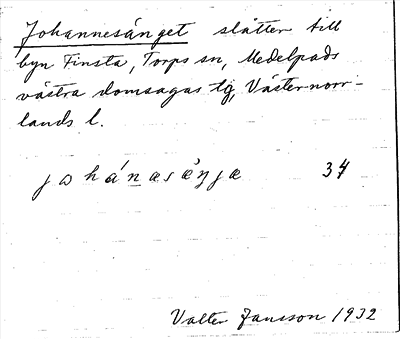 Johannesänget slåtter till
byn Finsta, Torps sn, Medelpads
västra domsagas tg, Västernorr-
lands l.
johánasæ̀ŋjæ 34
Valter Jansson 1932